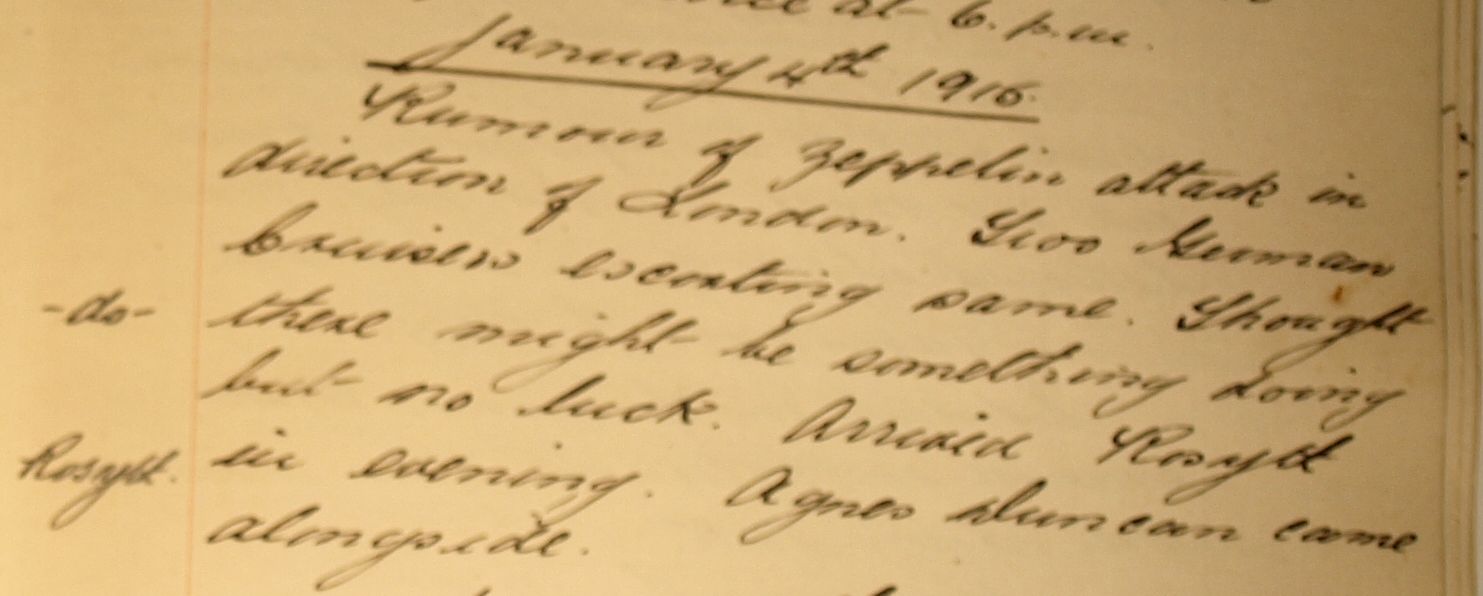 at 6. p.m.
January 4th 1916.
Rumour of Zeppelin attack in
direction of London. Two German
cruisers escorting same. Thought
-do- there might be something doing
but no luck. Arrived Rosyth
Rosyth. in evening. Agnes Duncan came
alongside.